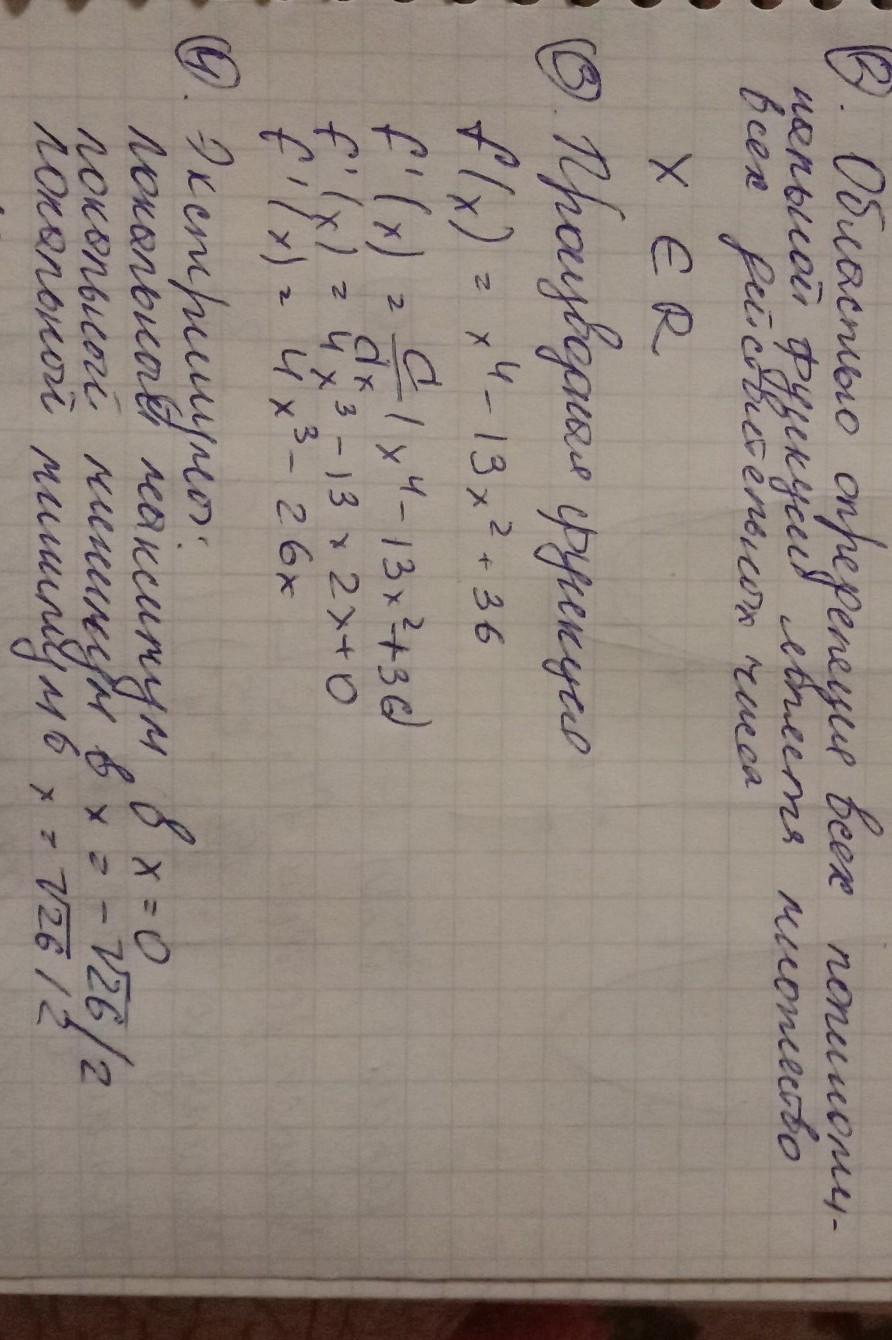 2. Областью определение всех полиноми-
нальной функции является множество
всех действительных числа
x ∈ R
3. Производная функцию
f(x) = x⁴ - 13x² + 36
f'(x) = d/dx (x⁴ - 13x² + 36)
f'(x) = 4x³ - 13 × 2x + 0
f'(x) = 4x³ - 26x
4. Экстримумо:
локальной максимум в x = 0
локальной минимум в x = -√26/2
локальной минимум в x = √26/2